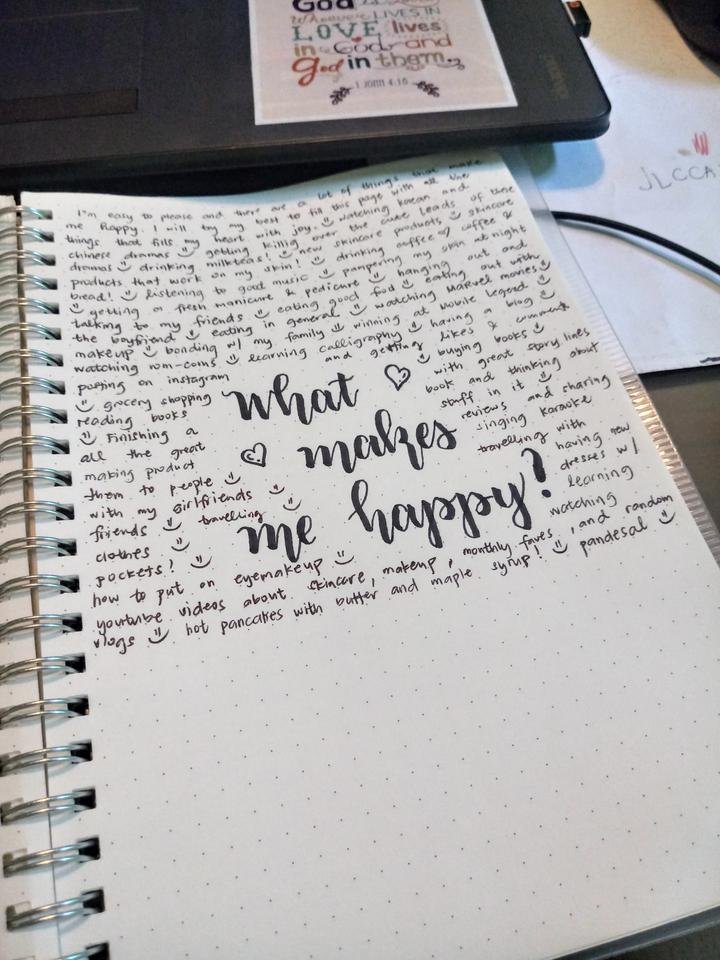 God
Whoever LIVES IN
LOVE lives
in God and
god in them.
1 John 4:16
JLCCA
I'm easy to please and there are a lot of things that make
me happy. I will try my best to fill this page with all the
things that fills my heart with joy. watching korean and
chinese dramas getting kilig over the cute leads of these
dramas drinking milkteas! new skincare products skincare
products that work on my skin! drinking coffee coffee &
bread! listening to good music pampering my skin at night
getting a fresh manicure & pedicure hanging out and
talking to my friends eating good food eating out with
the boyfriend eating in general watching MARVEL movies
makeup bonding w/ my family winning at Mobile Legend
watching rom-coms learning calligraphy having a blog
posting on instagram and getting likes & comments
grocery shopping what buying books
reading books with great story lines
Finishing a book and thinking about
all the great makes stuff in it
making product reviews and sharing
them to people singing karaoke
with my girlfriends travelling with
friends travelling me happy? having new
clothes dresses w/
pockets! learning
how to put on eyemakeup watching
youtube videos about skincare, makeup, monthly faves, and random
vlogs hot pancakes with butter and maple syrup! pandesal